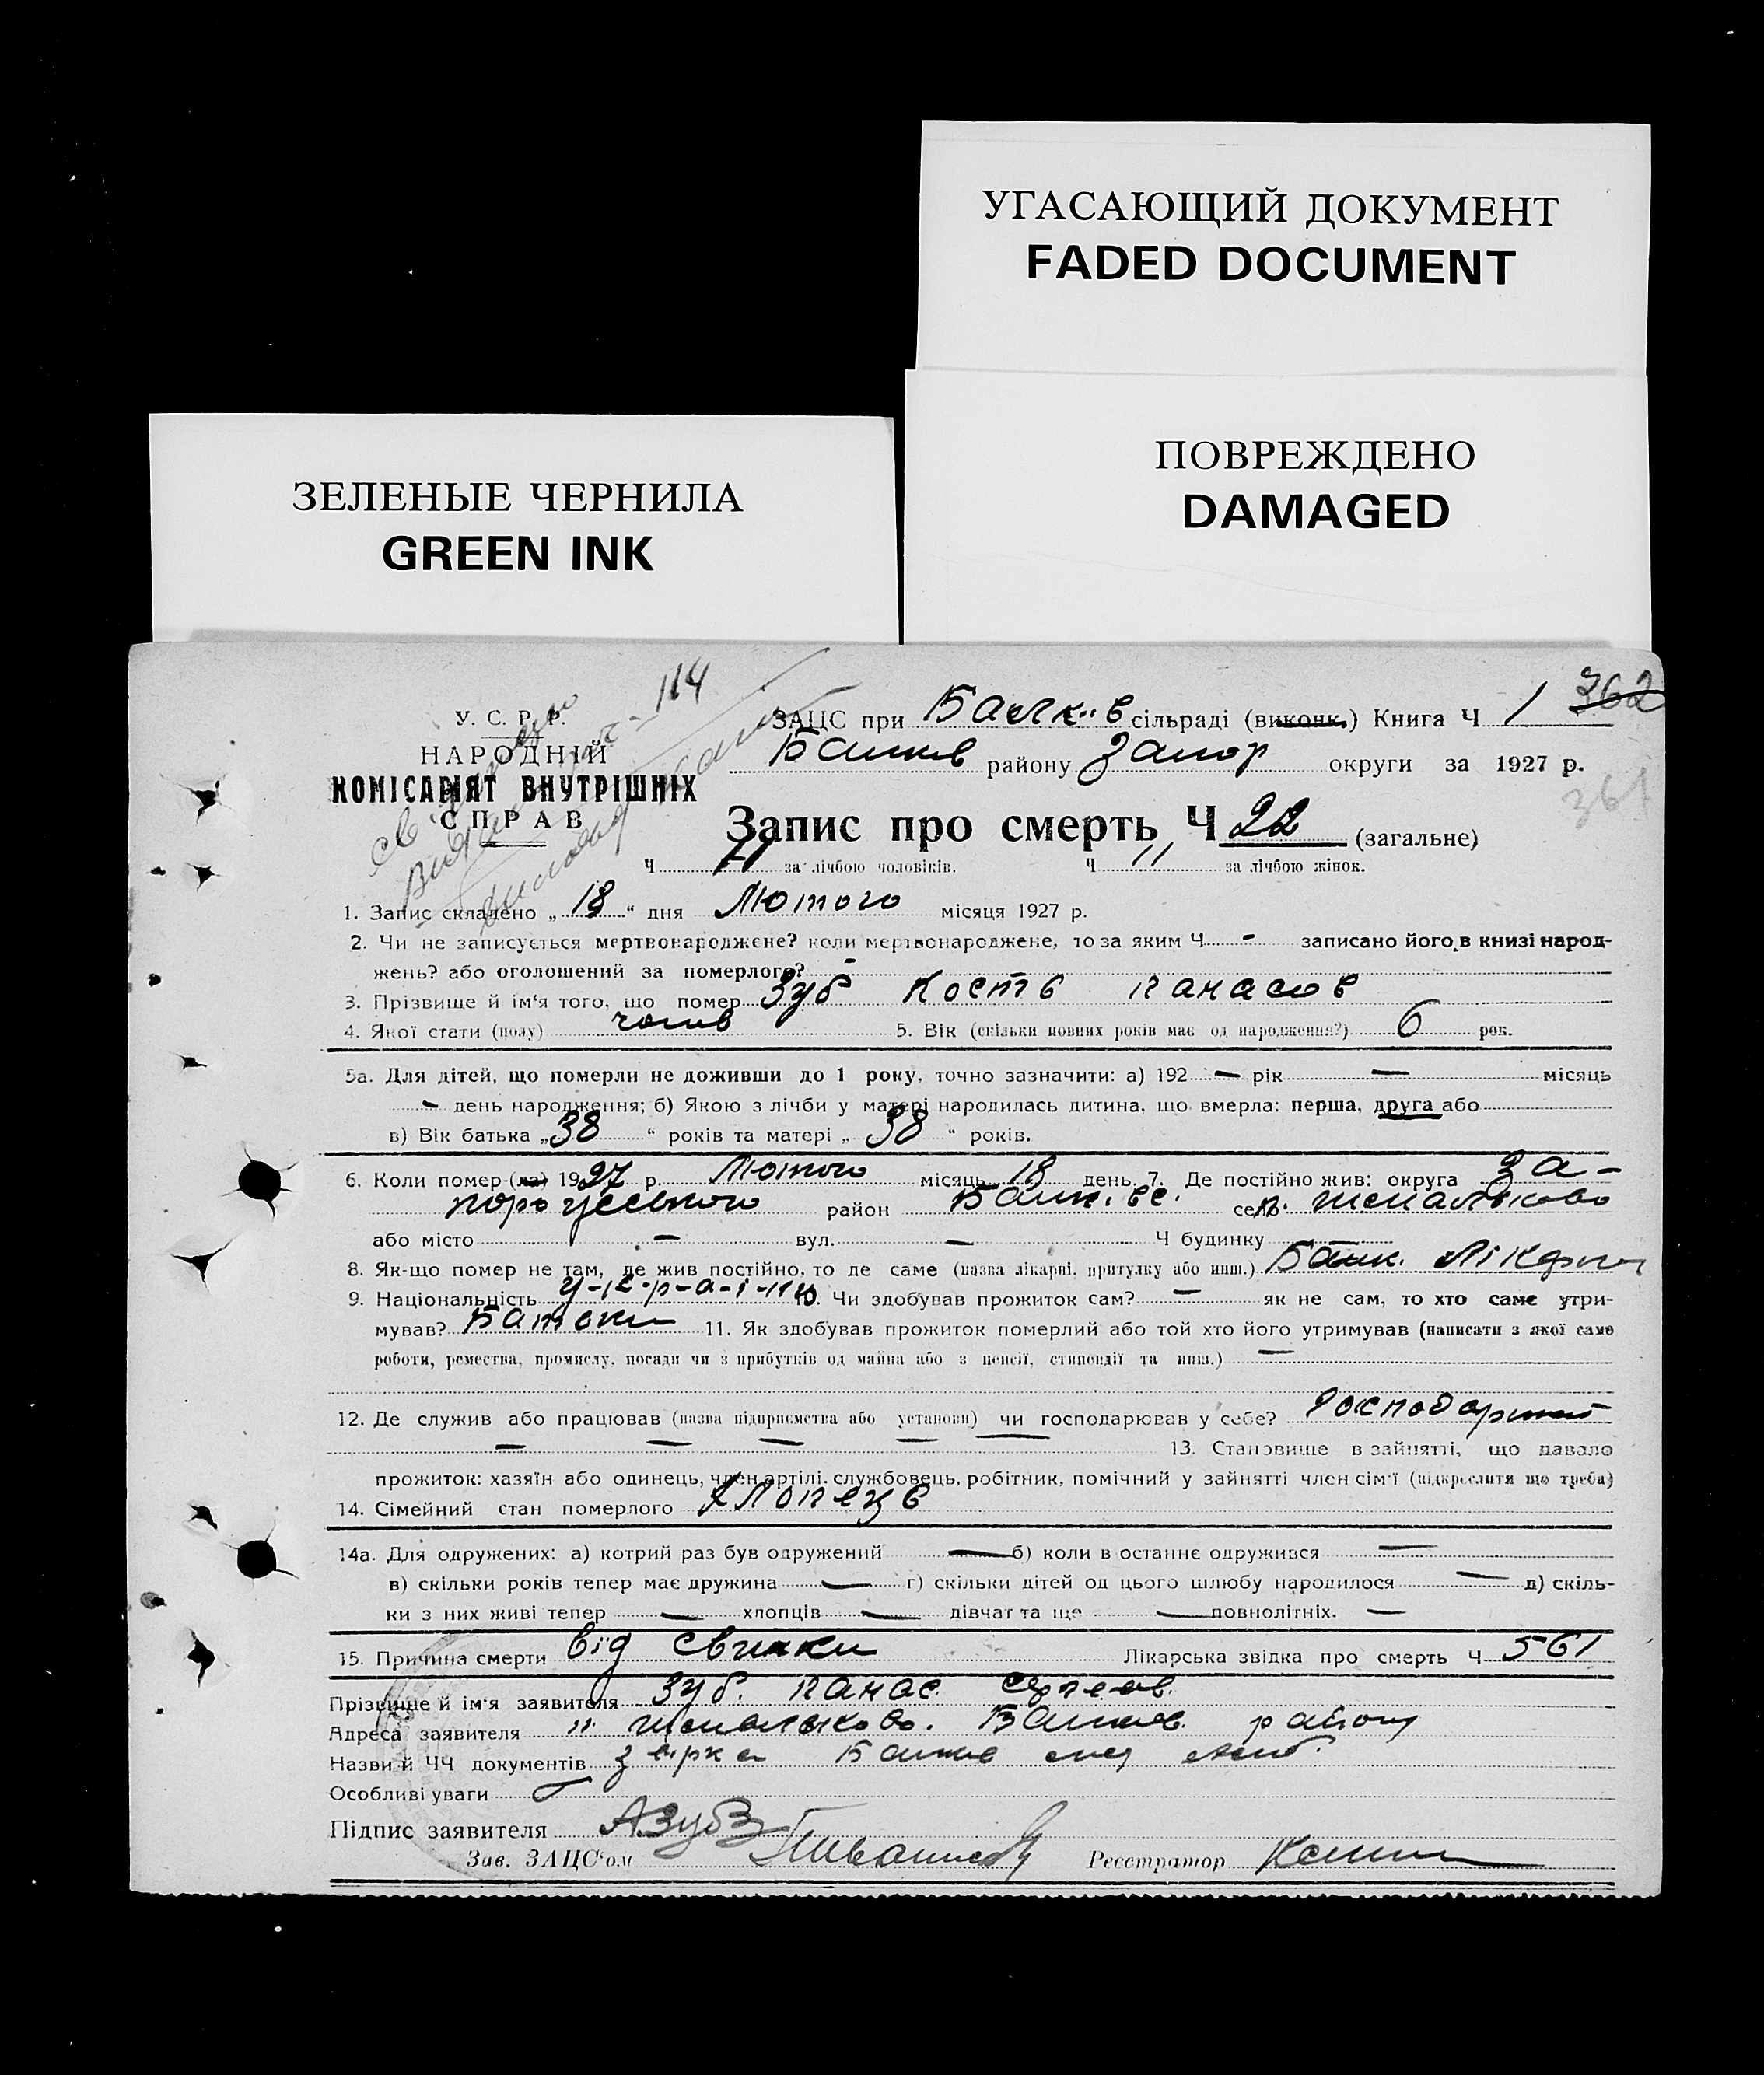 УГАСАЮЩИЙ ДОКУМЕНТ
FADED DOCUMENT
ПОВРЕЖДЕНО
DAMAGED
ЗЕЛЕНЫЕ ЧЕРНИЛА
GREEN INK
114
362
361
У. С. Р. Р.
НАРОДНІЙ
КОМІСАРІЯТ ВНУТРІШНІХ
СПРАВ
ЗАЦС при Балк-в сільраді (виконк.) Книга Ч 1
району Запор округи за 1927 р.
Запис про смерть Ч 22 (загальне)
Ч 11 за лічбою чоловіків. Ч 11 за лічбою жінок.
1. Запис складено „ 18 “ дня Лютого місяця 1927 р.
2. Чи не записується мертвонароджене? коли мертвонароджене, то за яким Ч - записано його в книзі народ-
жень? або оголошений за померлого? -
3. Прізвище й ім‘я того, що помер Зуб Кость Панасов
4. Якої стати (полу) чолив 5. Вік (скільки повних років має од народження?) 6 рок.
5а. Для дітей, що померли не доживши до 1 року, точно зазначити: а) 192 — рік — місяць
— день народження; б) Якою з лічби у матері народилась дитина, що вмерла: перша, друга або
в) Вік батька „ 38 “ років та матері „ 38 “ років.
6. Коли помер (ла) 1927 р. Лютого місяць 18 день. 7. Де постійно жив: округа За-
район село
або місто — вул. — Ч будинку
8. Як-що помер не там, де жив постійно, то де саме (назва лікарні, притулку або инш.)
9. Національність у-к-р-а-ї-н 10. Чи здобував прожиток сам? — як не сам, то хто саме утри-
мував? Батьки 11. Як здобував прожиток померлий або той хто його утримував (написати з якої саме
роботи, ремества, промислу, посади чи з прибутків од майна або з пенсії, стипендії та инш.) —
12. Де служив або працював (назва підприємства або установи) чи господарював у себе?
— — — — 13. Становище в зайнятті, що давало
прожиток: хазяїн або одинець, член артілі, службовець, робітник, помічний у зайнятті член сім‘ї (підкреслити що треба)
14. Сімейний стан померлого хлопець
14а. Для одружених: а) котрий раз був одружений — б) коли в останнє одружився —
в) скільки років тепер має дружина — г) скільки дітей од цього шлюбу народилося — д) скіль-
ки з них живі тепер — хлопців — дівчат та ще — повнолітніх. —
15. Причина смерти Від свинки Лікарська звідка про смерть Ч 561
Прізвище й ім‘я заявителя Зуб. Панас
Адреса заявителя району
Назви й ЧЧ документів
Особливі уваги
Підпис заявителя АЗуб
Зав. ЗАЦС‘ом Реєстратор